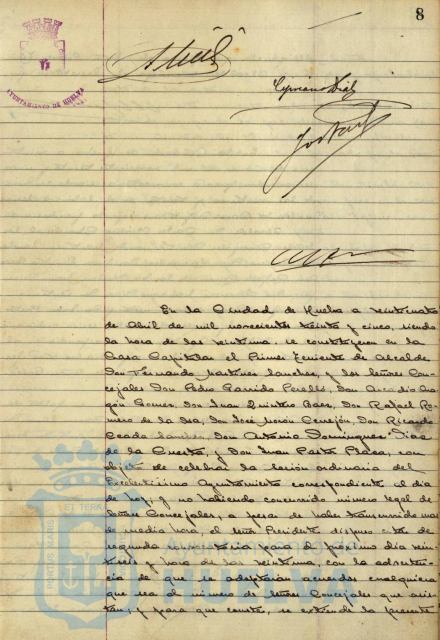 8
AYUNTAMIENTO DE HUELVA
Cipriano Díaz
En la Ciudad de Huelva a veinticuatro
de Abril de mil novecientos treinta y cinco, siendo
la hora de las veintiuna, se constituyeron en la
Casa Capitular el Primer Teniente de Alcalde
Don Fernando Martinez Sanchez, y los señores Con-
cejales Don Pedro Garrido Perelló, Don Arcadio Ara-
gón Gomez, Don Juan Quintero Baez, Don Rafael Ro-
mero de la Osa, Don José Morón Cerrejón, Don Ricardo
Terrades Sanchez, Don Antonio Dominguez Diaz
de la Cuesta, y Don Juan Plaza, con
objeto de celebrar la sesión ordinaria del
Excelentísimo Ayuntamiento correspondiente al día
de hoy, y no habiendo concurrido número legal de
señores Concejales, a pesar de haber transcurrido mas
de media hora, el señor Presidente dispuso citar de
segunda convocatoria para el próximo día vein-
tiseis y hora de las veintiuna, con la adverten-
cia de que se adoptarán acuerdos cualquiera
que sea el número de señores Concejales que asis-
tan; y para que conste, se extiende la presente